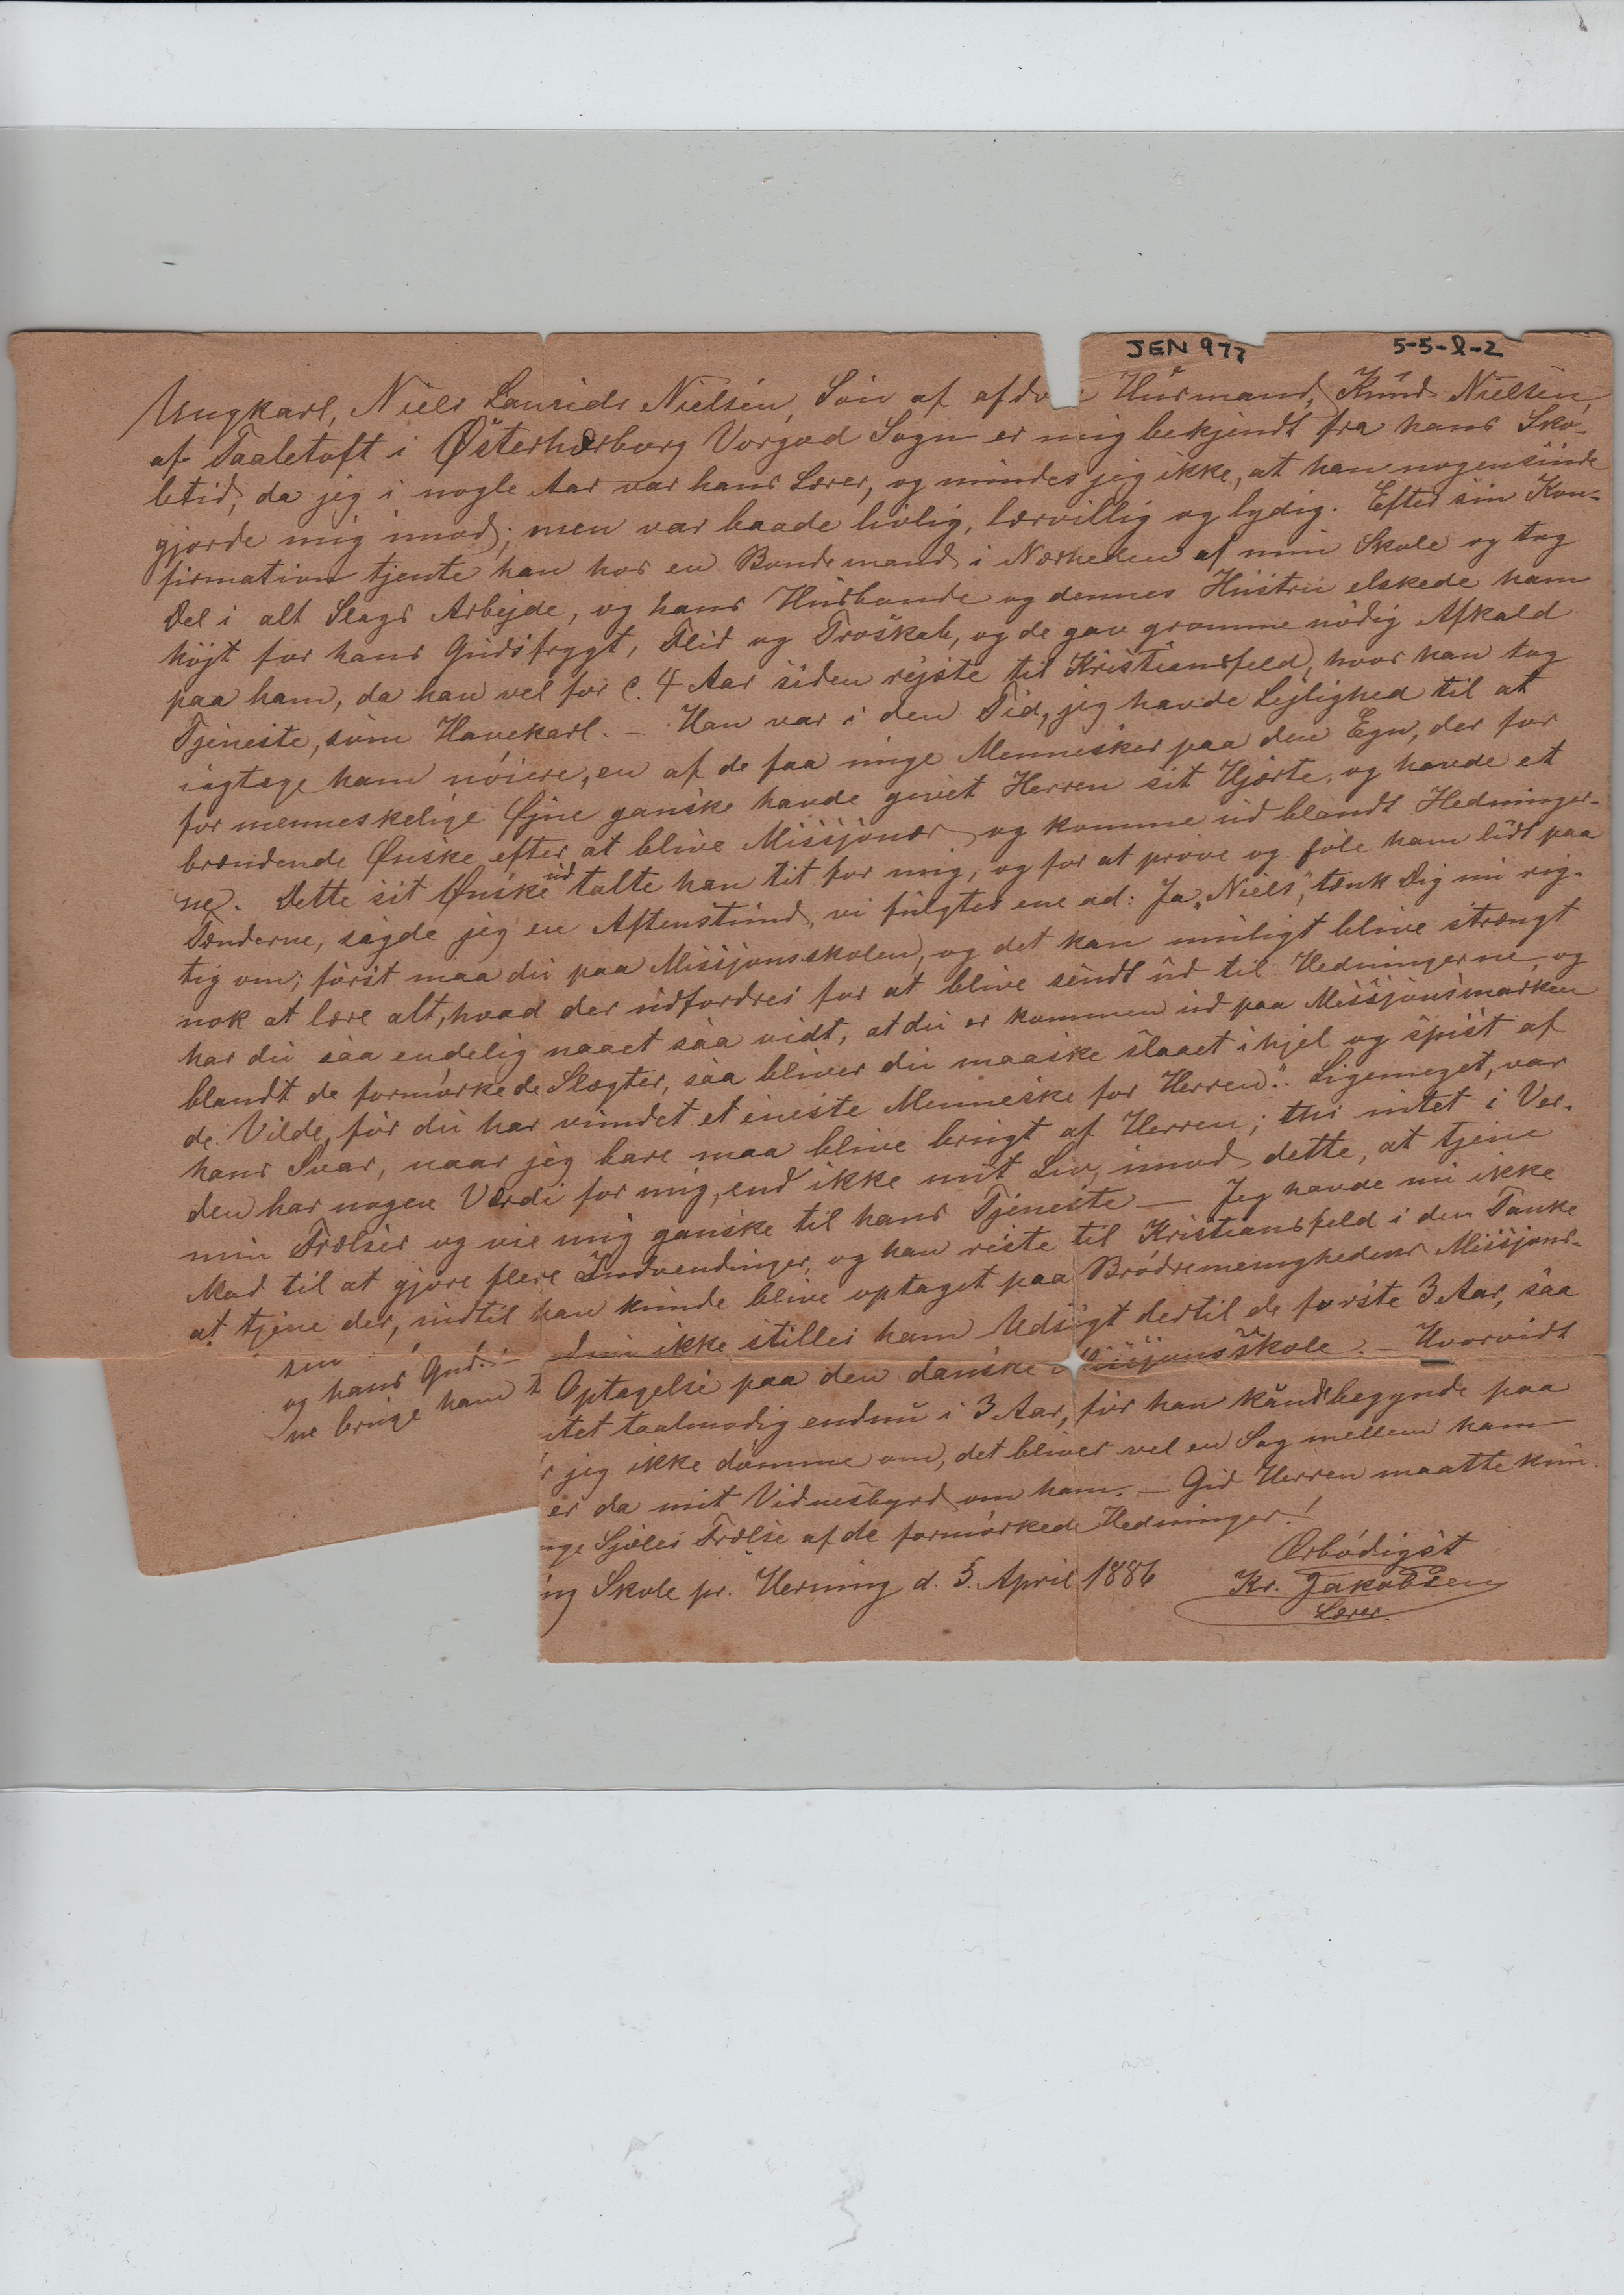 JEN 977 5-5-2-2
Ungkarl, Niels Laurids Nielsen, Søn af afdø e Husmand, Knud Nielsen,
af Taaletoft i Østerhørborg Vorgod Sogn er mig bekjendt fra hans Sko-
letid, da jeg i nogle Aar var hans Lærer, og mindes jeg ikke, at han nogensinde
gjorde mig imod; men var baade livlig, lærvillig og lydig. Efter sin Kon-
firmation tjente han hos en Bondemand i Nærheden af min Skole og tog
Del i alt Slags Arbejde, og hans Husbonde og dennes Hustru elskede ham
højt for hans Gudsfrygt, Flid og Troskab, og de gav gromme nödig Afkald
paa ham, da han vel for c. 4 Aar siden rejste til Kristiansfeld, hvor han tog
Tjeneste, som Havekarl. – Han var i den Tid, jeg havde Lejlighed til at
iagtage ham nöiere, en af de faa unge Mennesker paa den Egn, der for
for menneskelige Øjne ganske havde givet Herren sit Hjærte, og havde et
brændende Ønske efter at blive Missjonær og komme ud blandt Hedninger-
ne. Dette sit Ønske ud talte han tit for mig, og for at pröve og föle ham lidt paa
Tænderne, sagde jeg en Aftenstund, vi fulgtes ene ad: Ja, "Niels", tænk Dig nu rig-
tig om; först maa du paa Missjonsskolen, og det kan muligt blive strængt
nok at lære alt, hvad der udfordres for at blive sendt ud til Hedningerne, og
har du saa endelig naaet saa vidt, at du er kommen ud paa Missjonsmarken
blandt de formörkede Slægter, saa bliver du maaske slaaet ihjel og spist af
de Vilde, för du har vundet et eneste Menneske for Herren". Ligemeget, var
hans Svar, naar jeg bare maa blive brugt af Herren; thi intet i Ver-
den har nogen Værdi for mig, end ikke mit Liv, imod dette, at tjene
min Frælser og vie mig ganske til hans Tjeneste – Jeg havde nu ikke
Mod til at gjøre flere Indvendinger, og han reiste til Kristiansfeld i den Tanke
at tjene der, indtil han kunde blive optaget paa Brödremenighedens Missjons-
ikke stilles ham Udsigt dertil de förste 3 Aar, saa
Optagelse paa den danske Missjonsskole. – Hvorvidt
tet taalmodig endnu i 3 Aar, för han kan begynde paa
r jeg ikke dömme om, det bliver vel en Sag mellem ham
og hans Gud. – er da mit Vidnesbyrd om ham. – Gid Herren maatte kun-
ne bruge ham t nge Sjæles Frælse af de formörkede Hedninger!
ng Skole pr. Herning d. 5. April 1886
Ærbödigst
Kr. Jakobsen
Lærer.